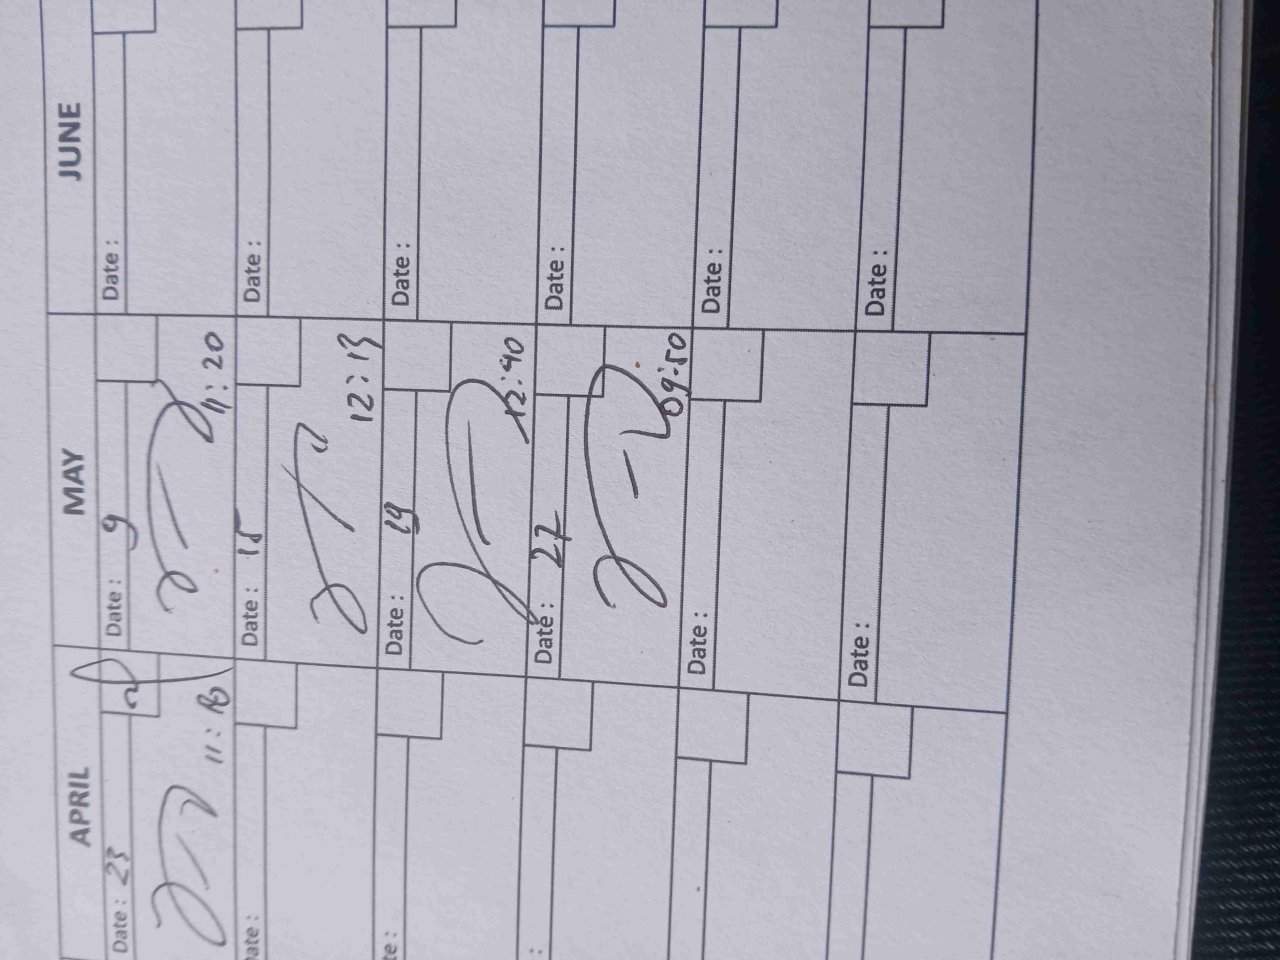 APRIL MAY JUNE
Date : 23 Date : 9 Date :
11: 20
ate : Date : 15 Date :
12 : 13
te : Date : 19 Date :
12:40
: Date : 27 Date :
09:50
Date : Date :
Date : Date :